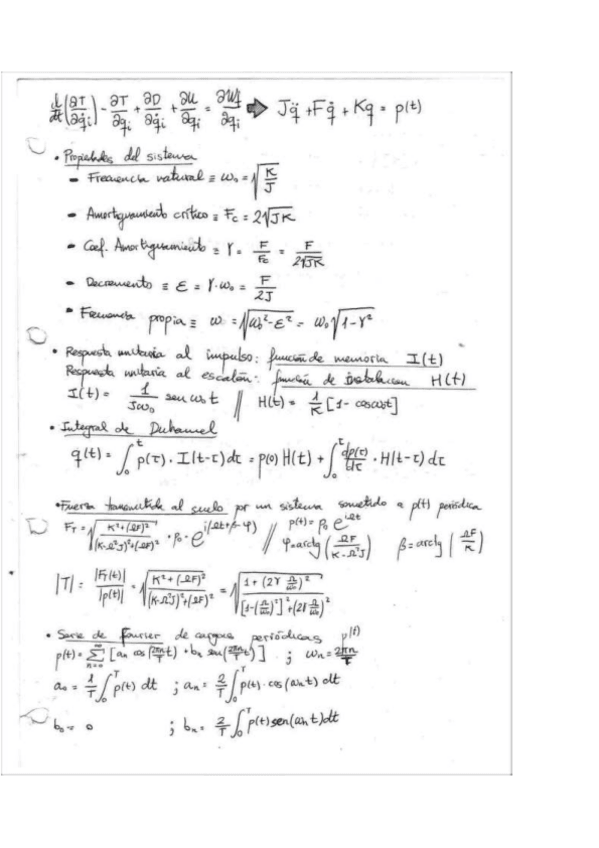 d/dt(∂T/∂q̇i) - ∂T/∂qi + ∂D/∂q̇i + ∂U/∂qi = ∂Wf/∂qi ⇒ Jq̈ + Fq̇ + Kq = p(t)
• Propiedades del sistema
- Frecuencia natural ≡ ω₀ = √(K/J)
- Amortiguamiento crítico ≡ Fc = 2√JK
- Coef. Amortiguamiento ≡ γ = F/Fc = F/2√JK
- Decremento ≡ ε = γ·ω₀ = F/2J
- Frecuencia propia ≡ ω = √(ω₀²-ε²) = ω₀√(1-γ²)
• Respuesta unitaria al impulso: función de memoria I(t)
Respuesta unitaria al escalón: función de instalación H(t)
I(t) = 1/Jω₀ sen ω₀t // H(t) = 1/K [1 - cosω₀t]
• Integral de Duhamel
q(t) = ∫₀ᵗ p(τ)·I(t-τ)dτ = p(0)H(t) + ∫₀ᵗ dp(τ)/dτ · H(t-τ)dτ
• Fuerza transmitida al suelo por un sistema sometido a p(t) periódica
F_T = √(K²+(ΩF)²/(K-Ω²J)²+(ΩF)²) · p₀ · e^i(Ωt+β-φ) // p(t) = p₀ e^iΩt
φ = arctg(ΩF/K-Ω²J) β = arctg(ΩF/K)
|T| = |F_T(t)|/|p(t)| = √(K²+(ΩF)²/(K-Ω²J)²+(ΩF)²) = √(1+(2γ Ω/ω₀)²/[1-(Ω/ω₀)²]²+(2γ Ω/ω₀)²)
• Serie de Fourier de cargas periódicas p(t)
p(t) = Σ n=0 ∞ [an cos(2πn/T t) + bn sen(2πn/T t)] ; ωn = 2πn/T
a₀ = 1/T ∫₀ᵀ p(t) dt ; an = 2/T ∫₀ᵀ p(t)·cos(ωn t) dt
b₀ = 0 ; bn = 2/T ∫₀ᵀ p(t) sen(ωn t) dt